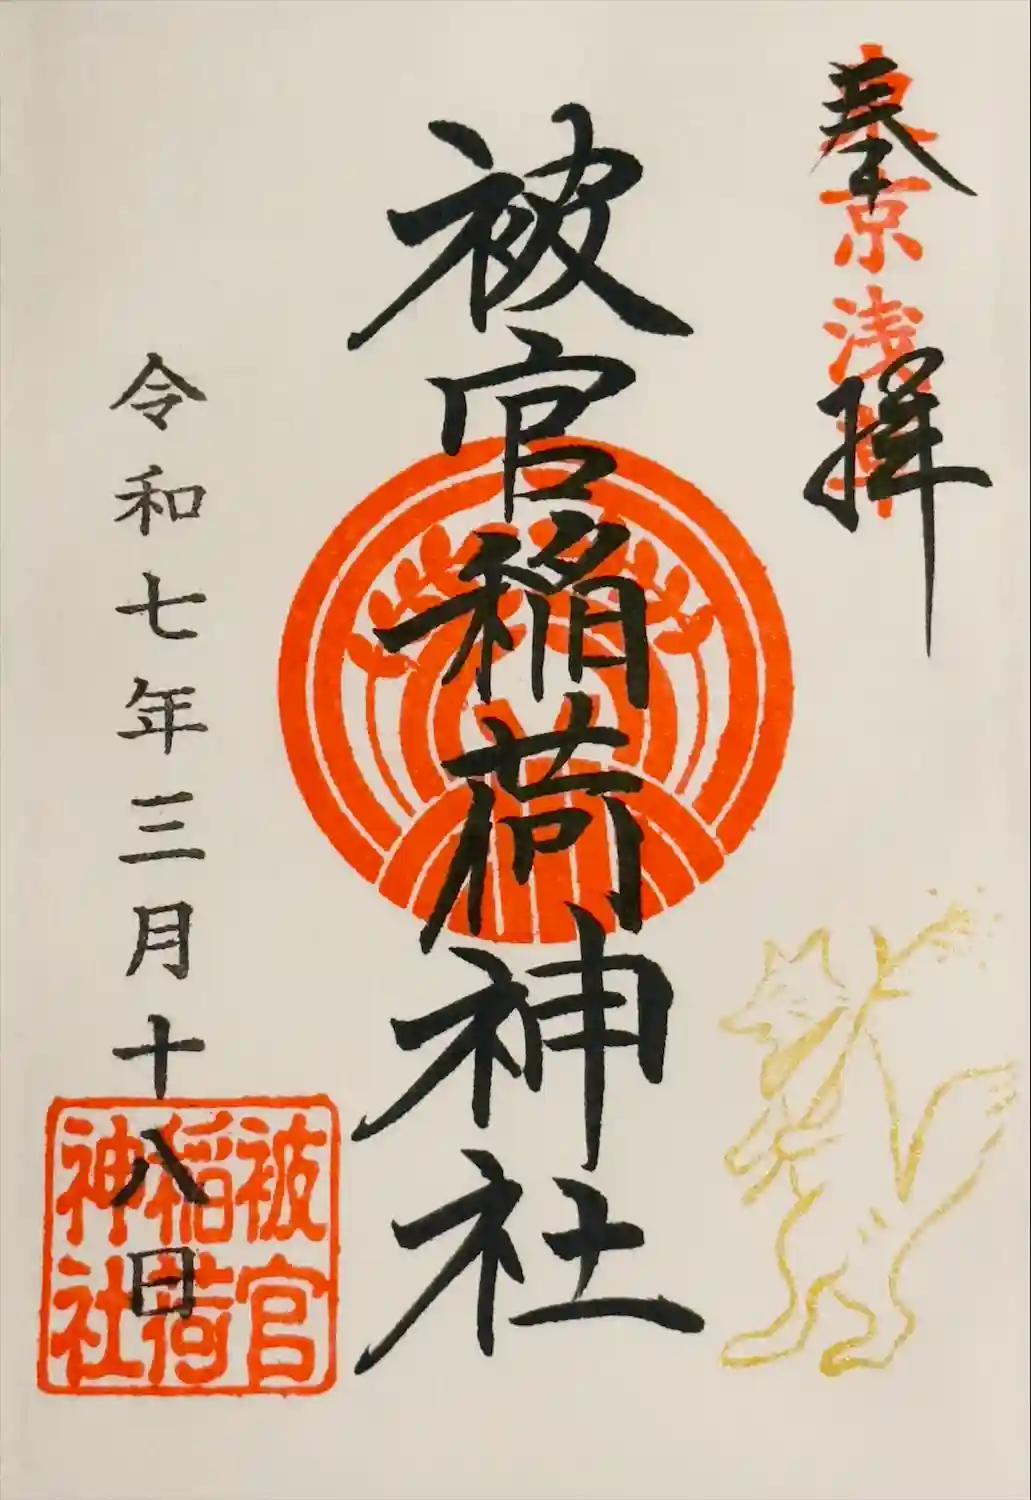 奉拝
東京浅草
被官稲荷神社
令和七年三月十八日
被官
稲荷
神社